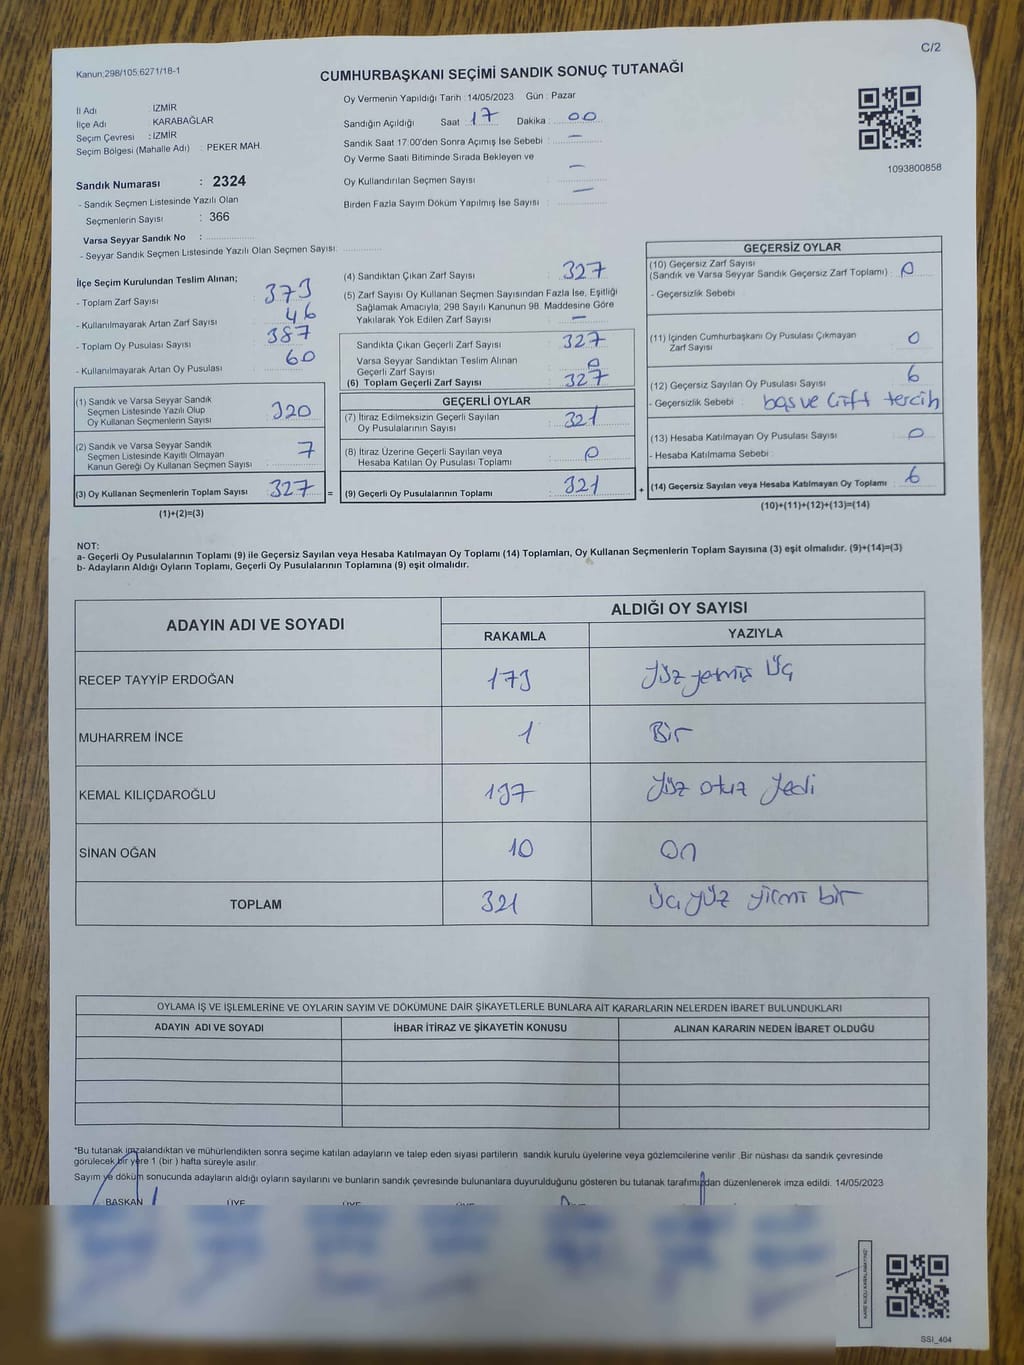 C/2
Kanun:298/105:6271/18-1
CUMHURBAŞKANI SEÇİMİ SANDIK SONUÇ TUTANAĞI
İl Adı : İZMİR
İlçe Adı : KARABAĞLAR
Seçim Çevresi : İZMİR
Seçim Bölgesi (Mahalle Adı) : PEKER MAH.
Sandık Numarası : 2324
- Sandık Seçmen Listesinde Yazılı Olan
Seçmenlerin Sayısı : 366
Varsa Seyyar Sandık No :
- Seyyar Sandık Seçmen Listesinde Yazılı Olan Seçmen Sayısı:
Oy Vermenin Yapıldığı Tarih : 14/05/2023 Gün : Pazar
Sandığın Açıldığı Saat : 17 Dakika : 00
Sandık Saat 17:00'den Sonra Açımış İse Sebebi : —
Oy Verme Saati Bitiminde Sırada Bekleyen ve
Oy Kullandırılan Seçmen Sayısı : —
Birden Fazla Sayım Döküm Yapılmış İse Sayısı : —
1093800858
İlçe Seçim Kurulundan Teslim Alınan;
- Toplam Zarf Sayısı : 373
- Kullanılmayarak Artan Zarf Sayısı : 46
- Toplam Oy Pusulası Sayısı : 387
- Kullanılmayarak Artan Oy Pusulası : 60
(1) Sandık ve Varsa Seyyar Sandık
Seçmen Listesinde Yazılı Olup
Oy Kullanan Seçmenlerin Sayısı : 320
(2) Sandık ve Varsa Seyyar Sandık
Seçmen Listesinde Kayıtlı Olmayan
Kanun Gereği Oy Kullanan Seçmen Sayısı : 7
(3) Oy Kullanan Seçmenlerin Toplam Sayısı : 327 =
(1)+(2)=(3)
(4) Sandıktan Çıkan Zarf Sayısı : 327
(5) Zarf Sayısı Oy Kullanan Seçmen Sayısından Fazla İse, Eşitliği
Sağlamak Amacıyla, 298 Sayılı Kanunun 98. Maddesine Göre
Yakılarak Yok Edilen Zarf Sayısı : —
Sandıkta Çıkan Geçerli Zarf Sayısı : 327
Varsa Seyyar Sandıktan Teslim Alınan
Geçerli Zarf Sayısı : 0
(6) Toplam Geçerli Zarf Sayısı : 327
GEÇERLİ OYLAR
(7) İtiraz Edilmeksizin Geçerli Sayılan
Oy Pusulalarının Sayısı : 321
(8) İtiraz Üzerine Geçerli Sayılan veya
Hesaba Katılan Oy Pusulası Toplamı : 0
(9) Geçerli Oy Pusulalarının Toplamı : 321 +
GEÇERSİZ OYLAR
(10) Geçersiz Zarf Sayısı
(Sandık ve Varsa Seyyar Sandık Geçersiz Zarf Toplamı) : 0
- Geçersizlik Sebebi :
(11) İçinden Cumhurbaşkanı Oy Pusulası Çıkmayan
Zarf Sayısı : 0
(12) Geçersiz Sayılan Oy Pusulası Sayısı : 6
- Geçersizlik Sebebi : boş ve Çift tercih
(13) Hesaba Katılmayan Oy Pusulası Sayısı : 0
- Hesaba Katılmama Sebebi :
(14) Geçersiz Sayılan veya Hesaba Katılmayan Oy Toplamı : 6
(10)+(11)+(12)+(13)=(14)
NOT:
a- Geçerli Oy Pusulalarının Toplamı (9) ile Geçersiz Sayılan veya Hesaba Katılmayan Oy Toplamı (14) Toplamları, Oy Kullanan Seçmenlerin Toplam Sayısına (3) eşit olmalıdır. (9)+(14)=(3)
b- Adayların Aldığı Oyların Toplamı, Geçerli Oy Pusulalarının Toplamına (9) eşit olmalıdır.
ADAYIN ADI VE SOYADI ALDIĞI OY SAYISI
RAKAMLA YAZIYLA
RECEP TAYYİP ERDOĞAN 173 yüz yetmiş Üç
MUHARREM İNCE 1 Bir
KEMAL KILIÇDAROĞLU 137 yüz otuz yedi
SİNAN OĞAN 10 On
TOPLAM 321 Üç yüz yirmi bir
OYLAMA İŞ VE İŞLEMLERİNE VE OYLARIN SAYIM VE DÖKÜMÜNE DAİR ŞİKAYETLERLE BUNLARA AİT KARARLARIN NELERDEN İBARET BULUNDUKLARI
ADAYIN ADI VE SOYADI İHBAR İTİRAZ VE ŞİKAYETİN KONUSU ALINAN KARARIN NEDEN İBARET OLDUĞU
*Bu tutanak imzalandıktan ve mühürlendikten sonra seçime katılan adayların ve talep eden siyasi partilerin sandık kurulu üyelerine veya gözlemcilerine verilir. Bir nüshası da sandık çevresinde
görülecek bir yere 1 (bir ) hafta süreyle asılır.
Sayım ve döküm sonucunda adayların aldığı oyların sayılarını ve bunların sandık çevresinde bulunanlara duyurulduğunu gösteren bu tutanak tarafımızdan düzenlenerek imza edildi. 14/05/2023
BAŞKAN ÜYE ÜYE ÜYE
SSI_404